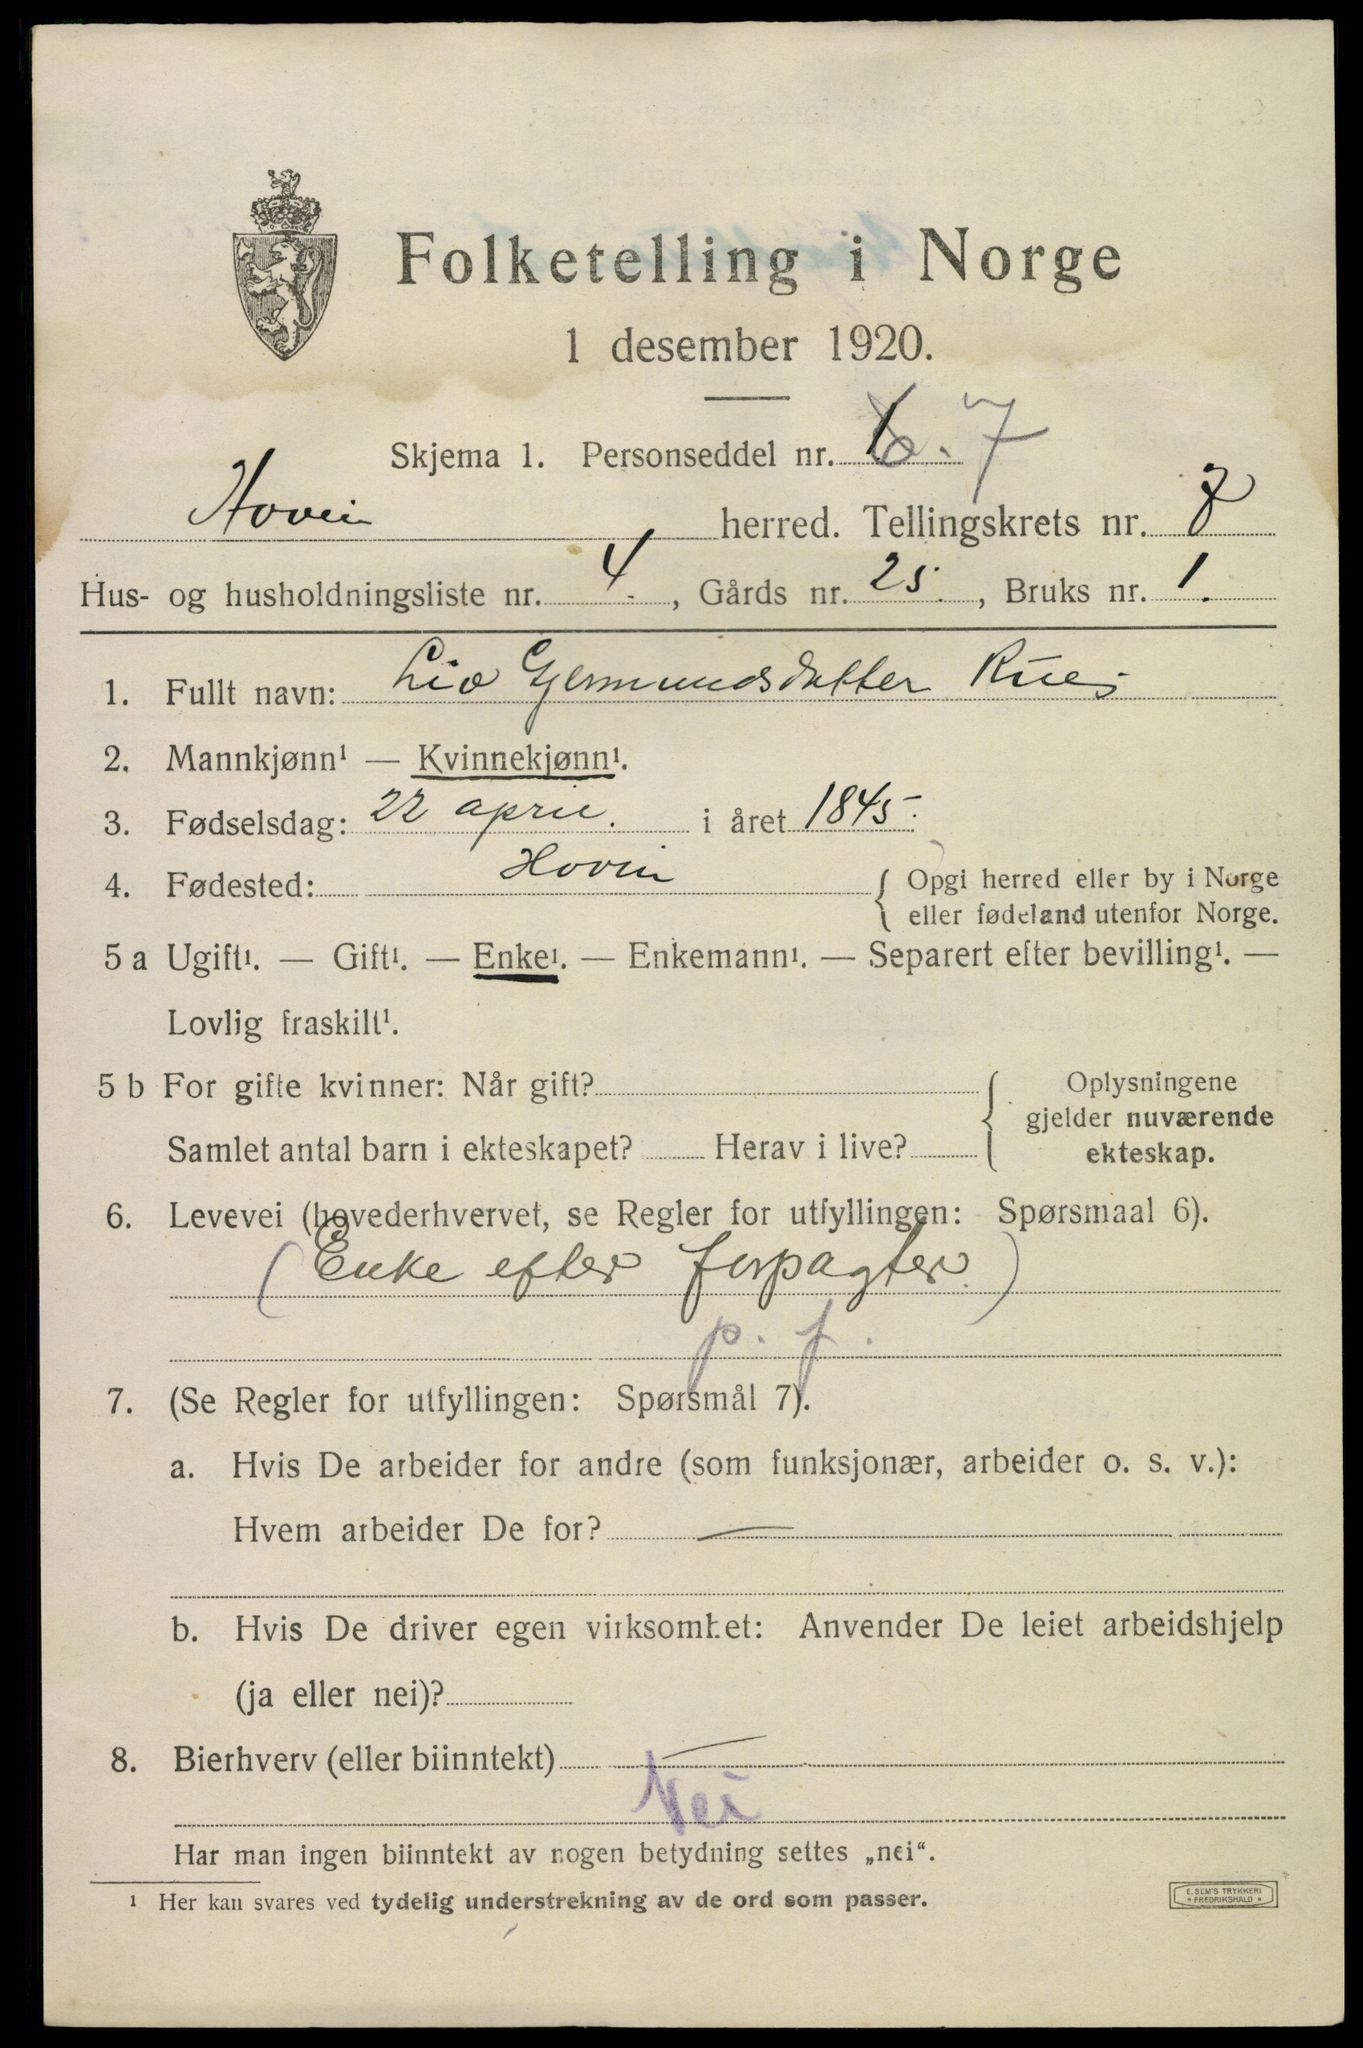 Folketelling i Norge
1 desember 1920.
Skjema 1. Personseddel nr. 7
Hovin herred. Tellingskrets nr. 7
Hus- og husholdningsliste nr. 4. , Gårds nr. 25. , Bruks nr. 1.
1. Fullt navn: Liv Gjermundsdatter
2. Mannkjønn¹ — Kvinnekjønn¹.
3. Fødselsdag: 22 april. i året 1845.
4. Fødested: Hovin { Opgi herred eller by i Norge
eller fødeland utenfor Norge.
5 a Ugift¹. — Gift¹. — Enke¹. — Enkemann¹. — Separert efter bevilling¹. —
Lovlig fraskilt¹.
5 b For gifte kvinner: Når gift? { Oplysningene
gjelder nuværende
Samlet antal barn i ekteskapet? Herav i live? ekteskap.
6. Levevei (hovederhvervet, se Regler for utfyllingen: Spørsmaal 6).
(Enke efter forpagter.)
p. f.
7. (Se Regler for utfyllingen: Spørsmål 7).
a. Hvis De arbeider for andre (som funksjonær, arbeider o. s. v.):
Hvem arbeider De for? —
b. Hvis De driver egen virksomhet: Anvender De leiet arbeidshjelp
(ja eller nei)?
8. Bierhverv (eller biinntekt) —
Nei
Har man ingen biinntekt av nogen betydning settes „nei“.
¹ Her kan svares ved tydelig understrekning av de ord som passer.
E. SEM'S TRYKKERI
* FREDRIKSHALD *